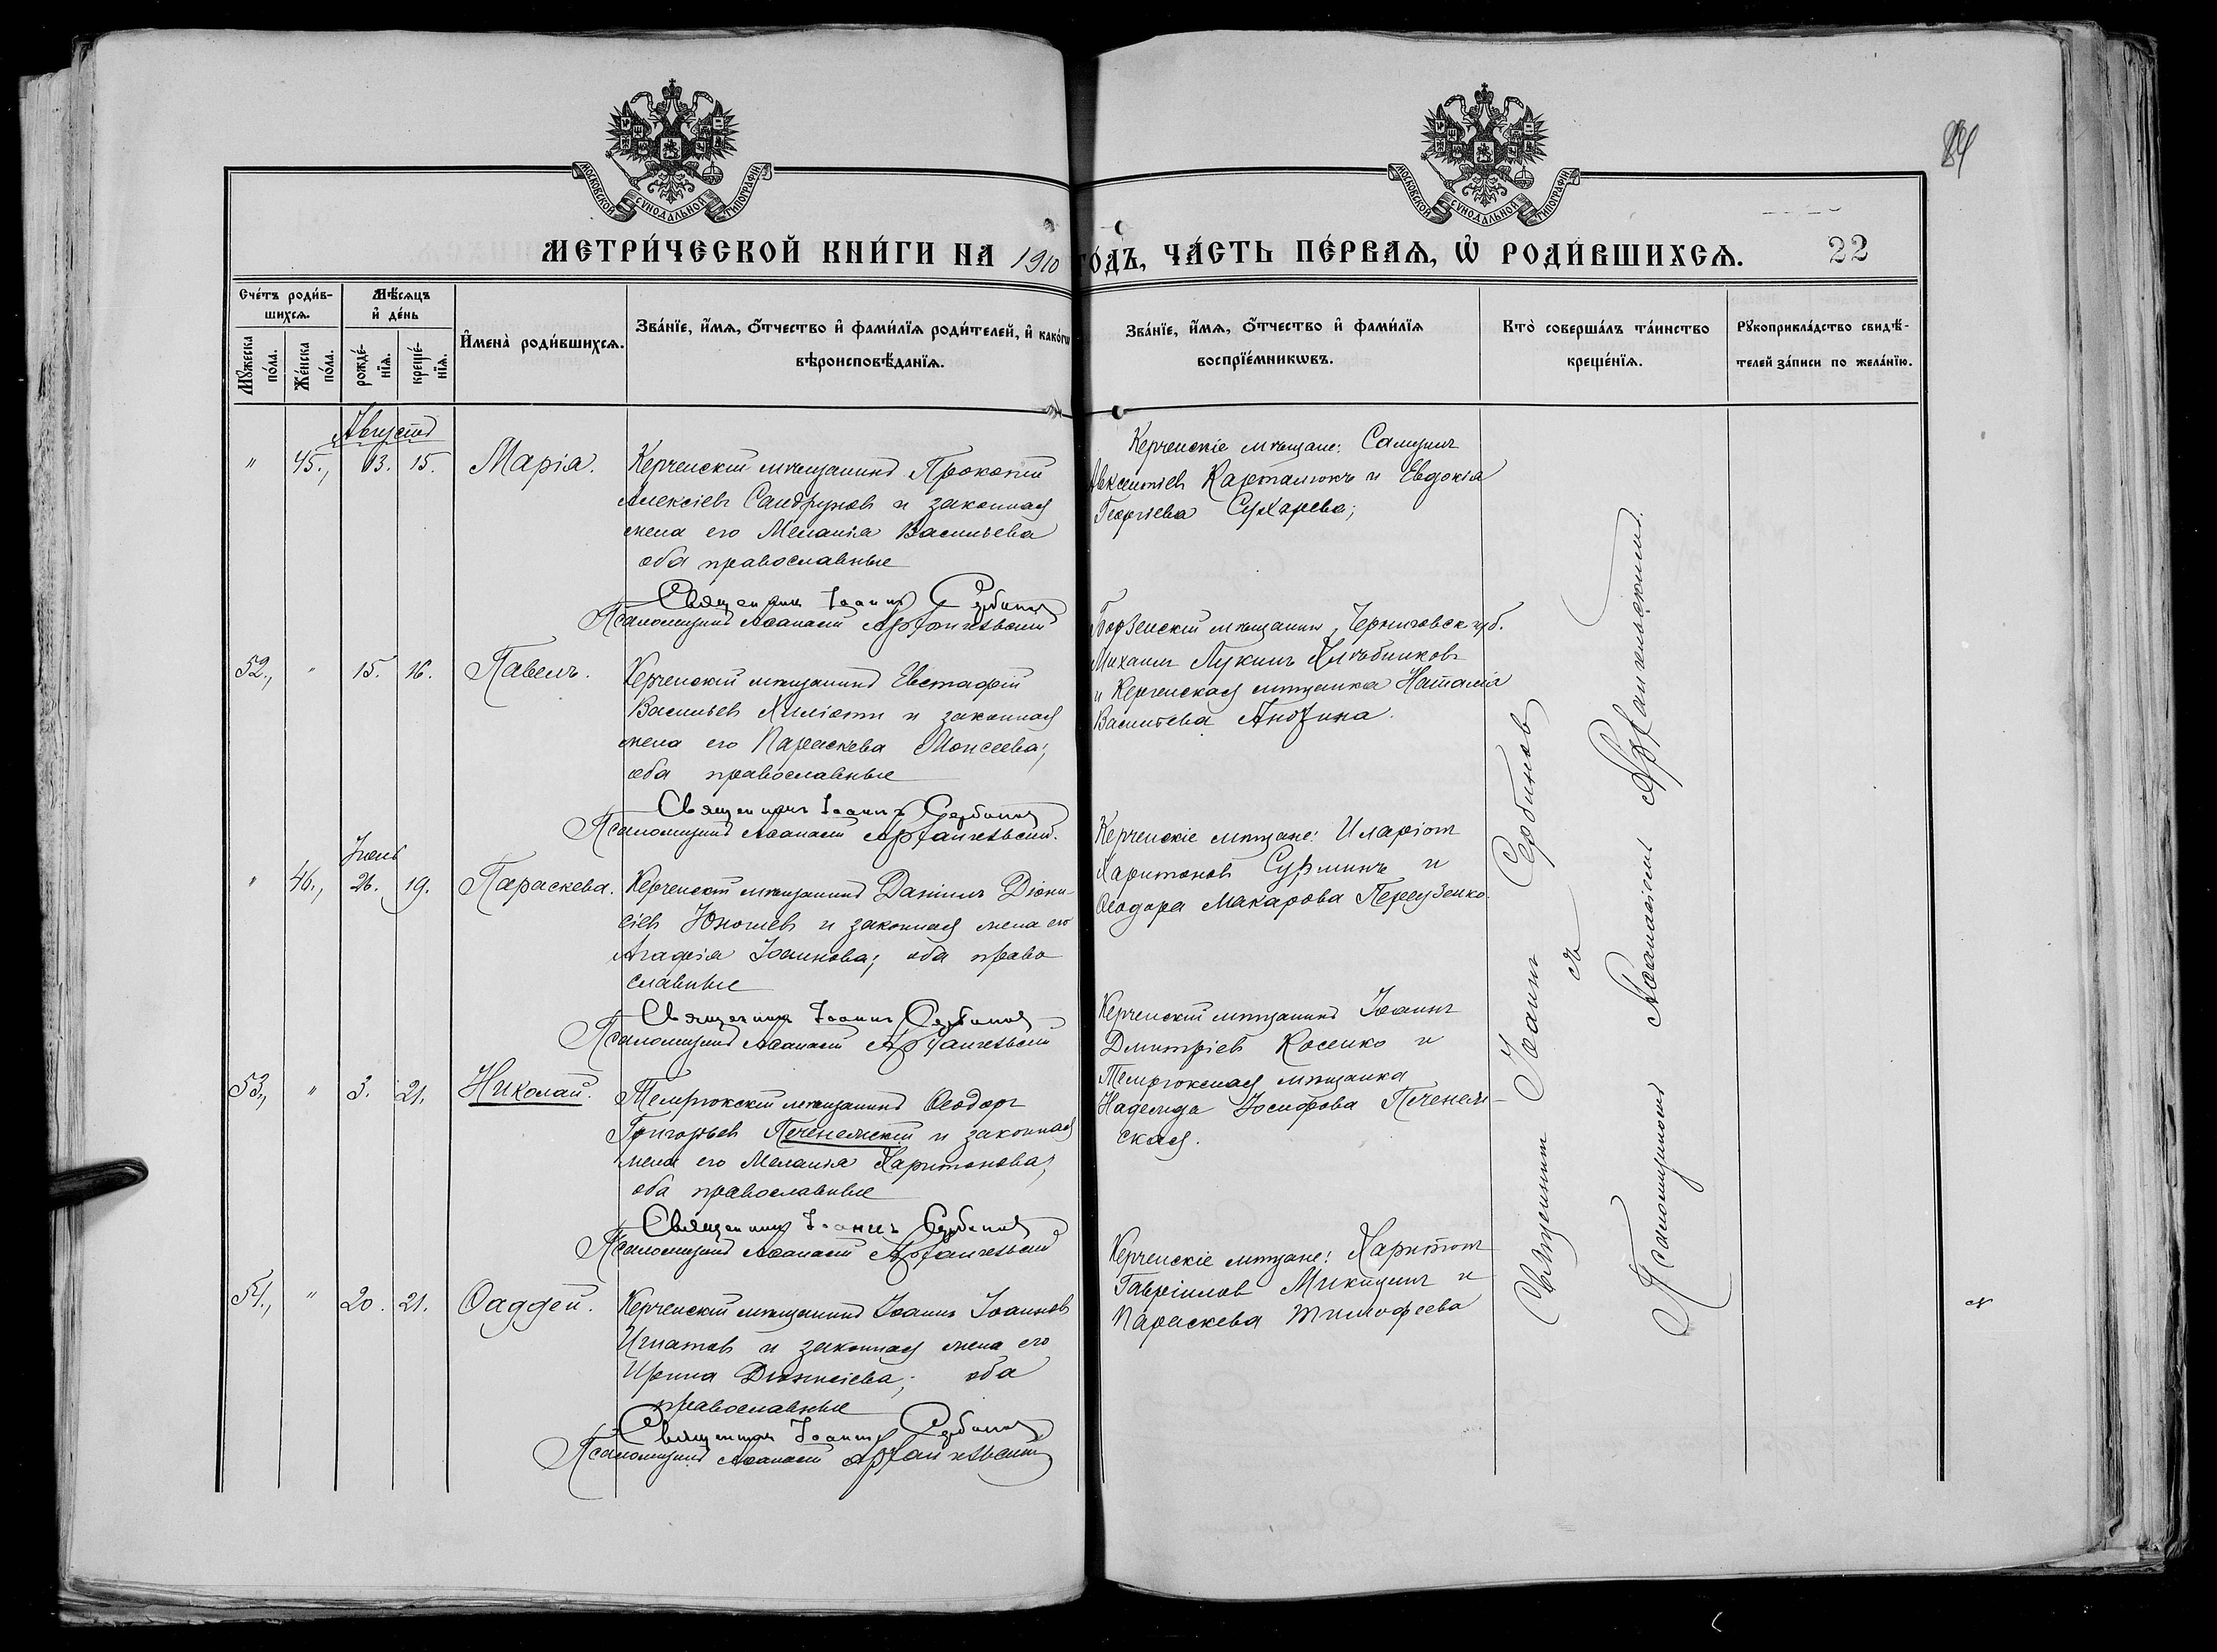 84
МОСКОВСКОЙ СѴНОДАЛЬНОЙ ТИПОГРАФІИ
МОСКОВСКОЙ СѴНОДАЛЬНОЙ ТИПОГРАФІИ
МЕТРИ́ЧЕСКОЙ КНИ́ГИ НА 1910 ГО́ДЪ, ЧА́СТЬ ПЕ́РВАѦ, Ѡ҆ РОДИ́ВШИХСѦ. 22
Счéтъ роди́в-
шихсѧ.
Мꙋжеска
по́ла.
Же́нска
по́ла.
Мѣ́сѧцъ
и҆ де́нь
рожде́-
нїѧ.
креще́-
нїѧ.
И҆мена̀ роди́вшихсѧ.
Зва́нїе, и҆́мѧ, ѻ҆́тчество и҆ фами́лїѧ роди́телей, и҆ како́гѡ
вѣроисповѣ́данїѧ.
Зва́нїе, и҆́мѧ, ѻ҆́тчество и҆ фами́лїѧ
воспрїе́мникѡвъ.
Кто̀ соверша́лъ та́инство
креще́нїѧ.
Рꙋкоприкла́дство свидѣ́-
телей за́писи по жела́нїю.
Августъ
" 45., 13. 15. Марія.
Керченскій мѣщанинъ Прокопій
Алексіевъ Сандруновъ и законная
жена его Меланія Васильева
оба православные
Священникъ Іоаннъ Сербиновъ
Псаломщикъ Аѳанасій Архангельскій
Керченскіе мѣщане:
Авксентіевъ и Евдокія
Георгіева Сухарева;
52., " 15. 16. Павелъ.
Керченскій мѣщанинъ Евстафій
Васильевъ и законная
жена его Параскева Моисеева;
оба православные
Священникъ Іоаннъ Сербиновъ
Псаломщикъ Аѳанасій Архангельскій.
Борзенскій мѣщанинъ, Черниговск. губ.
Михаилъ Лукинъ Хлѣбниковъ
и Керченская мѣщанка Наталія
Васильева
Іюль
" 46., 26. 19. Параскева.
Керченскій мѣщанинъ Даніилъ Діони-
сіевъ и законная жена его
Агафія Іоаннова; оба право
славные
Священникъ Іоаннъ Сербиновъ
Псаломщикъ Аѳанасій Архангельскій
Керченскіе мѣщане: Иларіонъ
Харитоновъ Сурминъ и
Ѳеодора Макарова
53., " 3. 21. Николай.
Темрюкскій мѣщанинъ Ѳеодоръ
Григорьевъ Печенежскій и законная
жена его Меланія Харитонова;
оба православные
Священникъ Іоаннъ Сербиновъ
Псаломщикъ Аѳанасій Архангельскій
Керченскій мѣщанинъ Іоаннъ
Дмитріевъ Косенко и
Темрюкская мѣщанка
Надежда Іосифова Печенеж-
ская.
54., " 20. 21. Ѳаддей.
Керченскій мѣщанинъ Іоаннъ Іоанновъ
Игнатовъ и законная жена его
Ирина Діонисіева; оба
православные
Священникъ Іоаннъ Сербиновъ
Псаломщикъ Аѳанасій Архангельскій
Керченскіе мѣщане: Харитонъ
Гавріиловъ Микишинъ и
Параскева Тимофеева
Священникъ Іоаннъ Сербиновъ
съ
Псаломщикомъ Аѳанасіемъ Архангельскимъ.